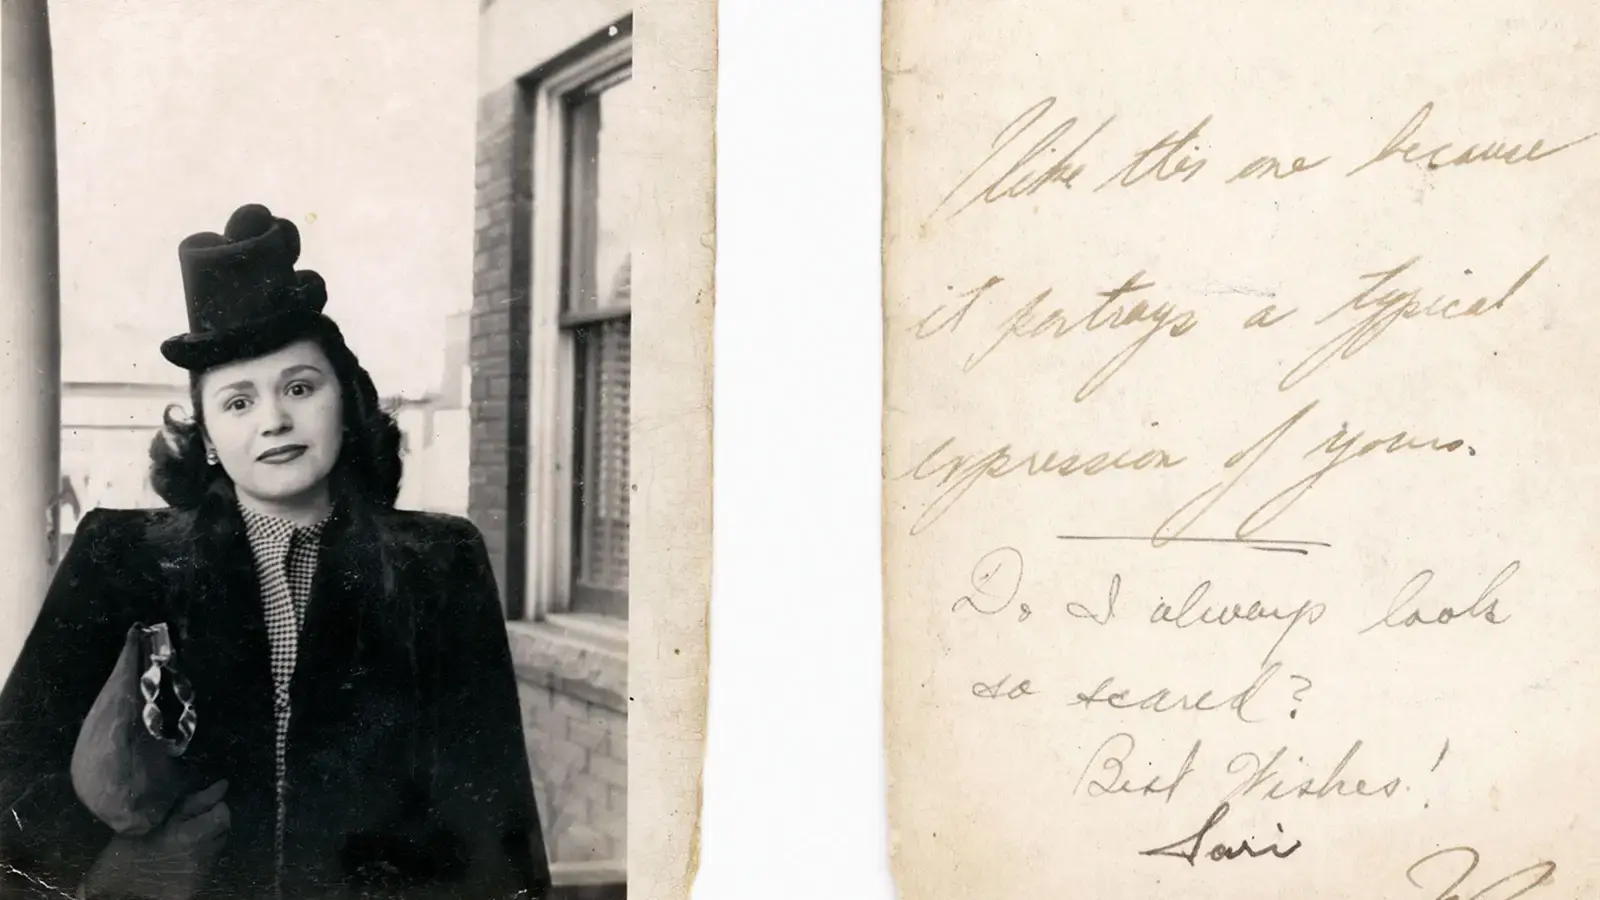 I like this one because
it portrays a typical
expression of yours.
Do I always look
so scared?
Best Wishes!
Sari